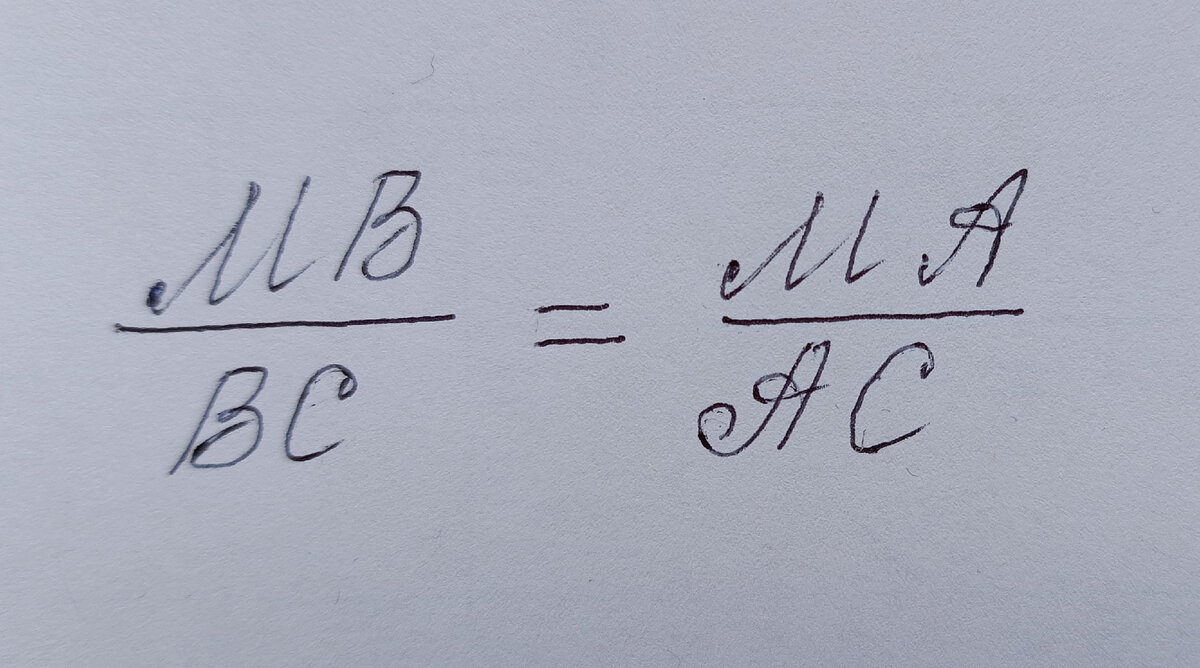 MB / BC = MA / AC